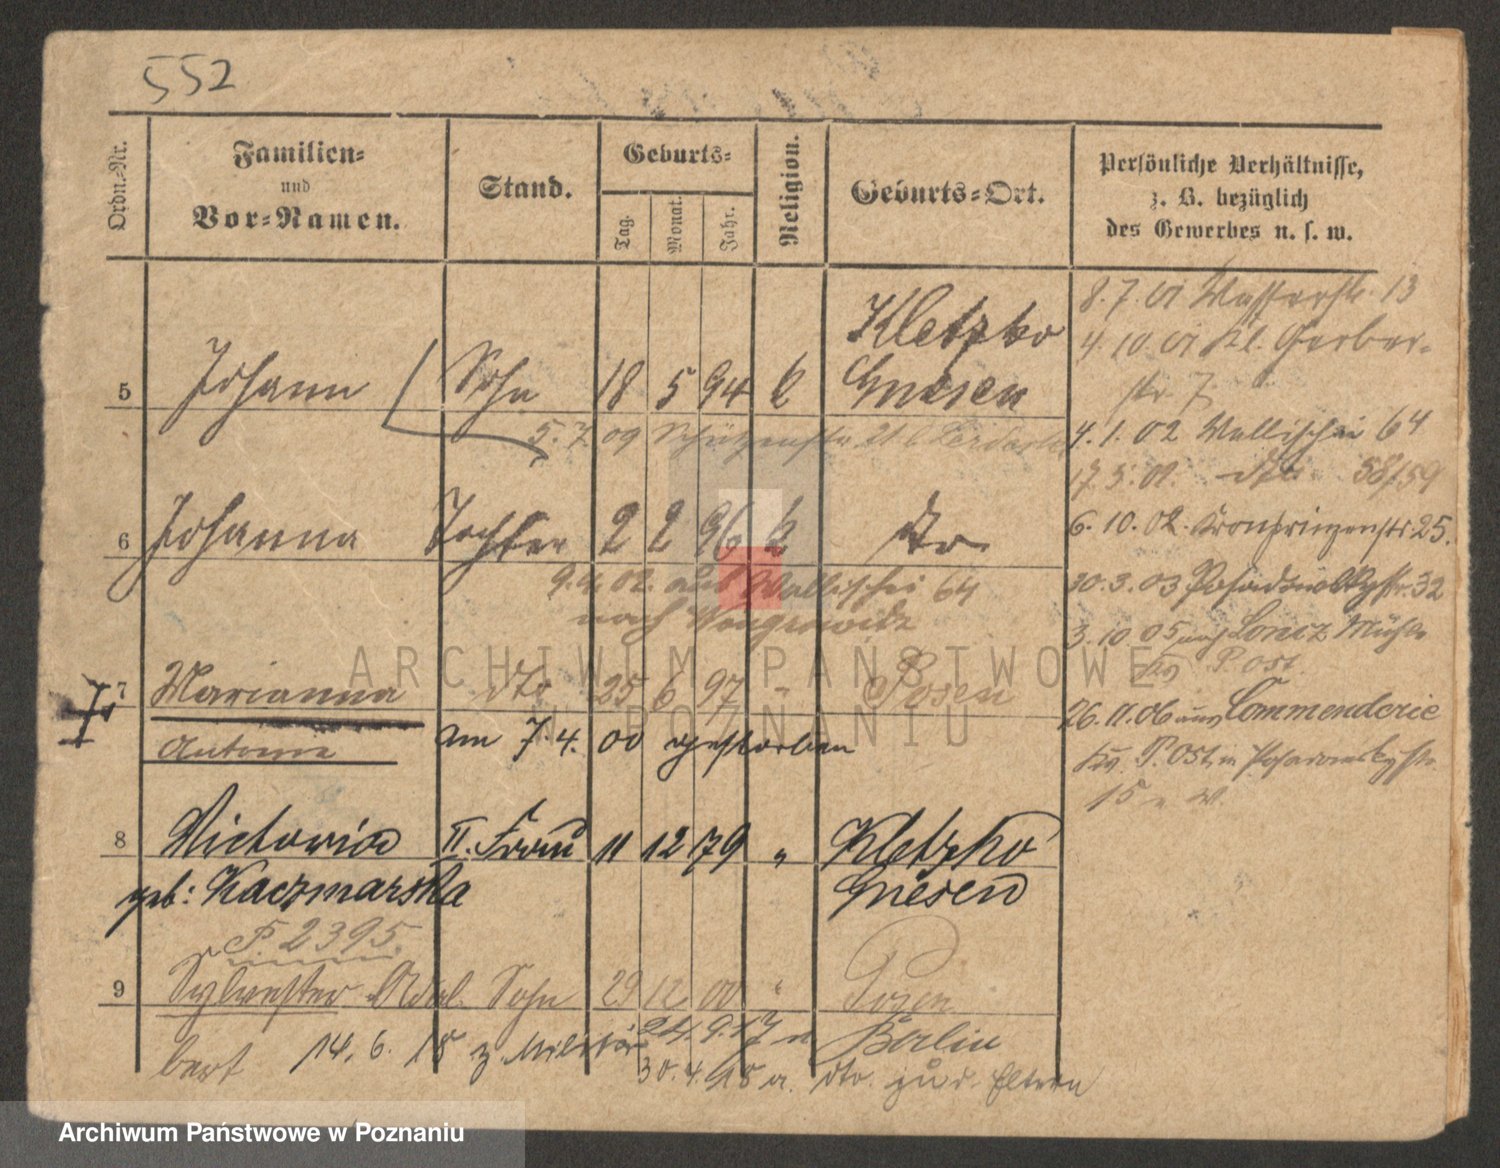 552
Ordn.-Nr.
Familien-
und
Vor-Namen.
Stand.
Geburts-
Tag.
Monat.
Jahr.
Religion.
Geburts-Ort.
Persönliche Verhältnisse,
z. B. bezüglich
des Gewerbes u. s. w.
8. 7. 01 Wasserstr. 13
4. 10 01 Kl. Gerber-
str 7
4. 1. 02 Wallischei 64
dto 58/59
6. 10. 02. Kronprinzenstr. 25.
30. 3. 03 Posadowskystr. 32
3. 10 05 Loncz Mühle
P. Ost
26. 11. 06 Commenderie
P. Ost, Posadowskystr.
15
Kletzko
5 Johann Sohn 18 5 94 k Gnesen
5. 7. 09 Schützenstr. 21
6 Johanna Tochter 2 2 96 k dto
9. 4. 02. aus Wallischei 64
nach Wongrowitz
7 Marianna dto 25 6 97 " Posen
Antonie am 7. 4. 00 gestorben
8 Victoria II. Frau 11 12 79 " Kletzko
geb: Kaczmarska Gnesen
P 2395.
9 Sylvester Adal- Sohn 29 12 00 " Posen
bert 14. 6. 18 z. Militär 24. 9. 17 n Berlin
30. 4. 18 a. dto. zu d. Eltern
ARCHIWUM PAŃSTWOWE
W POZNANIU
Archiwum Państwowe w Poznaniu